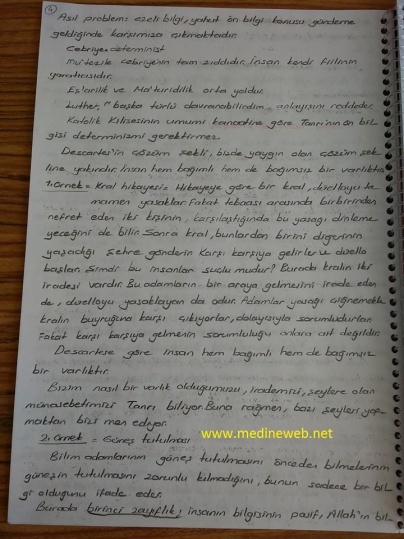 4
Asıl problem: ezeli bilgi, yahut ön bilgi konusu gündeme
geldiğinde karşımıza çıkmaktadır.
Cebriye: determinist
Mu'tezile cebriyenin tam zıddıdır. İnsan kendi fiilinin
yaratıcısıdır.
Eş'arilik ve Ma'turidilik orta yoldur.
Luther, "başka türlü davranabilirdim" anlayışını reddeder.
Katolik Kilisesinin umumi kanaatine göre Tanrı'nın ön bil-
gisi determinizmi gerektirmez.
Descartes'in çözüm şekli, bizde yaygın olan çözüm şek-
line yakındır. İnsan hem bağımlı hem de bağımsız bir varlıktır.
1. örnek = Kral hikayesi: Hikayeye göre bir kral, düelloyu ta-
mamen yasaklar. Fakat tebaası arasında birbirinden
nefret eden iki kişinin, karşılaştığında bu yasağı dinleme-
yeceğini de bilir. Sonra kral, bunlardan birini diğerinin
yaşadığı şehre gönderir. Karşı karşıya gelirler ve düello
başlar. Şimdi bu insanlar suçlu mudur? Burada kralın iki
iradesi vardır. Bu adamların bir araya gelmesini irade eden
de, düelloyu yasaklayan da odur. Adamlar yasağı çiğnemekle
kralın buyruğuna karşı çıkıyorlar, dolayısıyla sorumludurlar.
Fakat karşı karşıya gelmenin sorumluluğu onlara ait değildir.
Descartese göre insan hem bağımlı hem de bağımsız
bir varlıktır.
Bizim nasıl bir varlık olduğumuzu, irademizi, şeylere olan
münasebetimizi Tanrı biliyor. Buna rağmen, bazı şeyleri yap-
maktan bizi men ediyor.
2. örnek = Güneş tutulması
www.medineweb.net
Bilim adamlarının güneş tutulmasını önceden bilmelerinin
güneşin tutulmasını zorunlu kılmadığını, bunun sadece bir bil-
gi olduğunu ifade eder.
Burada birinci zayıflık; insanın bilgisinin pasif, Allah'ın bil-